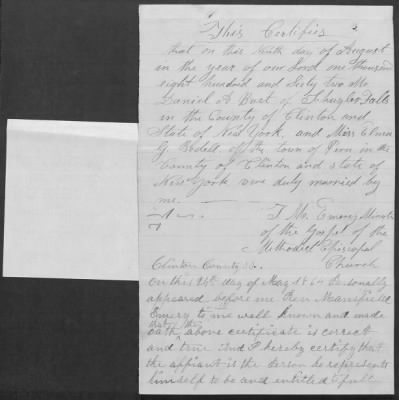 This Certifies
that on this Ninth day of August
in the year of our Lord one thousand
eight hundred and Sixty two Mr
Daniel A Burt of Schuyler Falls
in the County of Clinton and
State of New York, and Miss
G of the town of Peru in the
County of Clinton and state of
New York were duly married by
me.
Emory Minister
of the Gospel of the
Methodist Episcopal
Church
Clinton County SS.
On the 25th day of May 1864 Personally
appeared before me Rev
Emery to me well known and made
oath that the above certificate is correct
and true And I hereby certify that
the appliant is the person he represents
himself to be and entitled